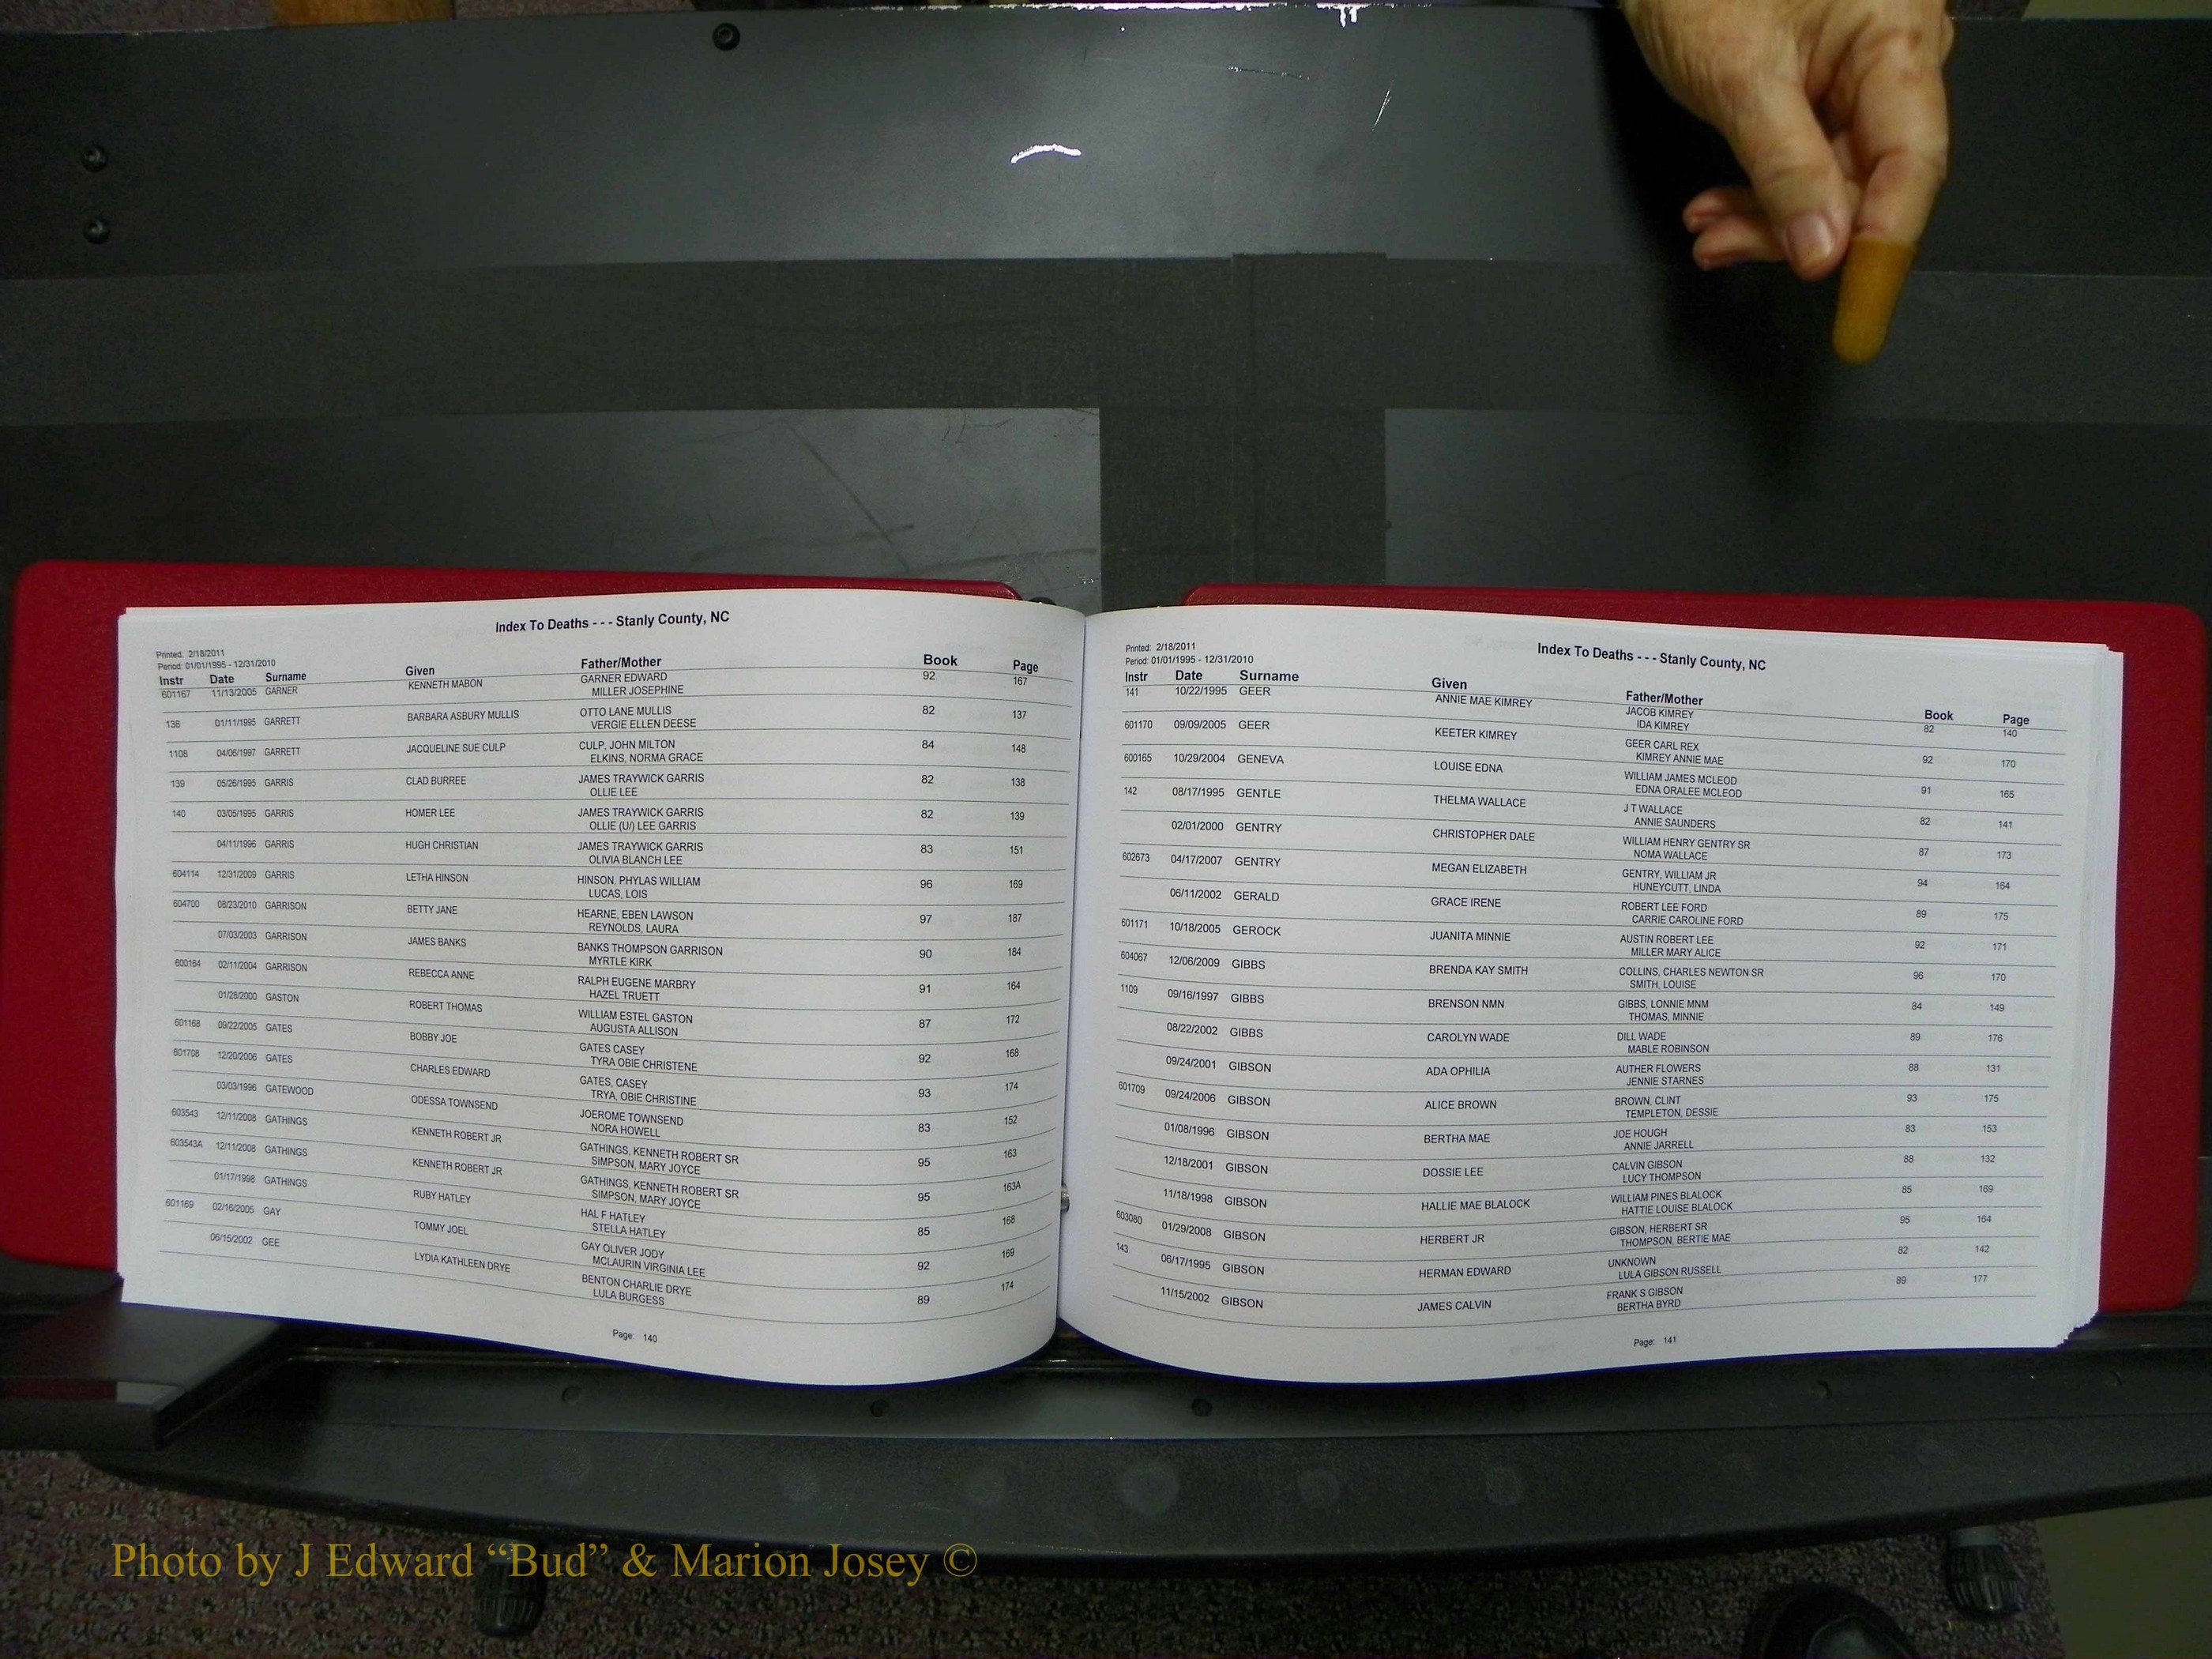 Index To Deaths - - - Stanly County, NC
Printed: 2/18/2011
Period: 01/01/1995 - 12/31/2010
Instr Date Surname Given Father/Mother Book Page
601167 11/13/2005 GARNER KENNETH MABON GARNER EDWARD 92 167
MILLER JOSEPHINE
138 01/11/1995 GARRETT BARBARA ASBURY MULLIS OTTO LANE MULLIS 82 137
VERGIE ELLEN DEESE
1108 04/06/1997 GARRETT JACQUELINE SUE CULP CULP, JOHN MILTON 84 148
ELKINS, NORMA GRACE
139 05/26/1995 GARRIS CLAD BURREE JAMES TRAYWICK GARRIS 82 138
OLLIE LEE
140 03/05/1995 GARRIS HOMER LEE JAMES TRAYWICK GARRIS 82 139
OLLIE (U/) LEE GARRIS
04/11/1996 GARRIS HUGH CHRISTIAN JAMES TRAYWICK GARRIS 83 151
OLIVIA BLANCH LEE
604114 12/31/2009 GARRIS LETHA HINSON HINSON, PHYLAS WILLIAM 96 169
LUCAS, LOIS
604700 08/23/2010 GARRISON BETTY JANE HEARNE, EBEN LAWSON 97 187
REYNOLDS, LAURA
07/03/2003 GARRISON JAMES BANKS BANKS THOMPSON GARRISON 90 184
MYRTLE KIRK
600164 02/11/2004 GARRISON REBECCA ANNE RALPH EUGENE MARBRY 91 164
HAZEL TRUETT
01/28/2000 GASTON ROBERT THOMAS WILLIAM ESTEL GASTON 87 172
AUGUSTA ALLISON
601168 09/22/2005 GATES BOBBY JOE GATES CASEY 92 168
TYRA OBIE CHRISTENE
601708 12/20/2006 GATES CHARLES EDWARD GATES, CASEY 93 174
TRYA, OBIE CHRISTINE
03/03/1996 GATEWOOD ODESSA TOWNSEND JOEROME TOWNSEND 83 152
NORA HOWELL
603543 12/11/2008 GATHINGS KENNETH ROBERT JR GATHINGS, KENNETH ROBERT SR 95 163
SIMPSON, MARY JOYCE
603543A 12/11/2008 GATHINGS KENNETH ROBERT JR GATHINGS, KENNETH ROBERT SR 95 163A
SIMPSON, MARY JOYCE
01/17/1998 GATHINGS RUBY HATLEY HAL F HATLEY 85 168
STELLA HATLEY
601169 02/16/2005 GAY TOMMY JOEL GAY OLIVER JODY 92 169
MCLAURIN VIRGINIA LEE
06/15/2002 GEE LYDIA KATHLEEN DRYE BENTON CHARLIE DRYE 89 174
LULA BURGESS
Page: 140
Index To Deaths - - - Stanly County, NC
Printed: 2/18/2011
Period: 01/01/1995 - 12/31/2010
Instr Date Surname Given Father/Mother Book Page
141 10/22/1995 GEER ANNIE MAE KIMREY JACOB KIMREY 82 140
IDA KIMREY
601170 09/09/2005 GEER KEETER KIMREY GEER CARL REX 92 170
KIMREY ANNIE MAE
600165 10/29/2004 GENEVA LOUISE EDNA WILLIAM JAMES MCLEOD 91 165
EDNA ORALEE MCLEOD
142 08/17/1995 GENTLE THELMA WALLACE J T WALLACE 82 141
ANNIE SAUNDERS
02/01/2000 GENTRY CHRISTOPHER DALE WILLIAM HENRY GENTRY SR 87 173
NOMA WALLACE
602673 04/17/2007 GENTRY MEGAN ELIZABETH GENTRY, WILLIAM JR 94 164
HUNEYCUTT, LINDA
06/11/2002 GERALD GRACE IRENE ROBERT LEE FORD 89 175
CARRIE CAROLINE FORD
601171 10/18/2005 GEROCK JUANITA MINNIE AUSTIN ROBERT LEE 92 171
MILLER MARY ALICE
604067 12/06/2009 GIBBS BRENDA KAY SMITH COLLINS, CHARLES NEWTON SR 96 170
SMITH, LOUISE
1109 09/16/1997 GIBBS BRENSON NMN GIBBS, LONNIE MNM 84 149
THOMAS, MINNIE
08/22/2002 GIBBS CAROLYN WADE DILL WADE 89 176
MABLE ROBINSON
09/24/2001 GIBSON ADA OPHILIA AUTHER FLOWERS 88 131
JENNIE STARNES
601709 09/24/2006 GIBSON ALICE BROWN BROWN, CLINT 93 175
TEMPLETON, DESSIE
01/08/1996 GIBSON BERTHA MAE JOE HOUGH 83 153
ANNIE JARRELL
12/18/2001 GIBSON DOSSIE LEE CALVIN GIBSON 88 132
LUCY THOMPSON
11/18/1998 GIBSON HALLIE MAE BLALOCK WILLIAM PINES BLALOCK 85 169
HATTIE LOUISE BLALOCK
603080 01/29/2008 GIBSON HERBERT JR GIBSON, HERBERT SR 95 164
THOMPSON, BERTIE MAE
143 06/17/1995 GIBSON HERMAN EDWARD UNKNOWN 82 142
LULA GIBSON RUSSELL
11/15/2002 GIBSON JAMES CALVIN FRANK S GIBSON 89 177
BERTHA BYRD
Page: 141
Photo by J Edward “Bud” & Marion Josey ©